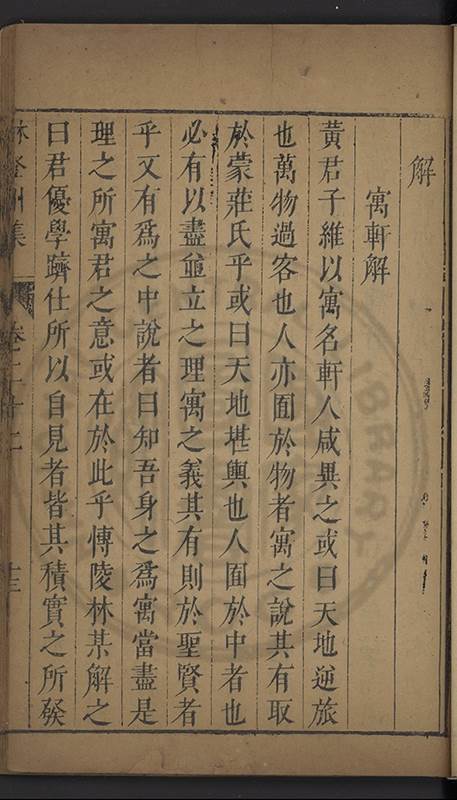 解
寓軒解
黃君子維以寓名軒人咸異之或曰天地逆旅
也萬物過客也人亦囿於物者寓之說其有取
於蒙莊氏乎或曰天地堪輿也人囿於中者也
必有以盡並立之理寓之義其有則於聖賢者
乎又有爲之中說者曰知吾身之爲寓當盡是
理之所寓君之意或在於此乎愽陵林某解之
曰君優學躋仕所以自見者皆其積實之所發
林登州集
卷二十二
十三